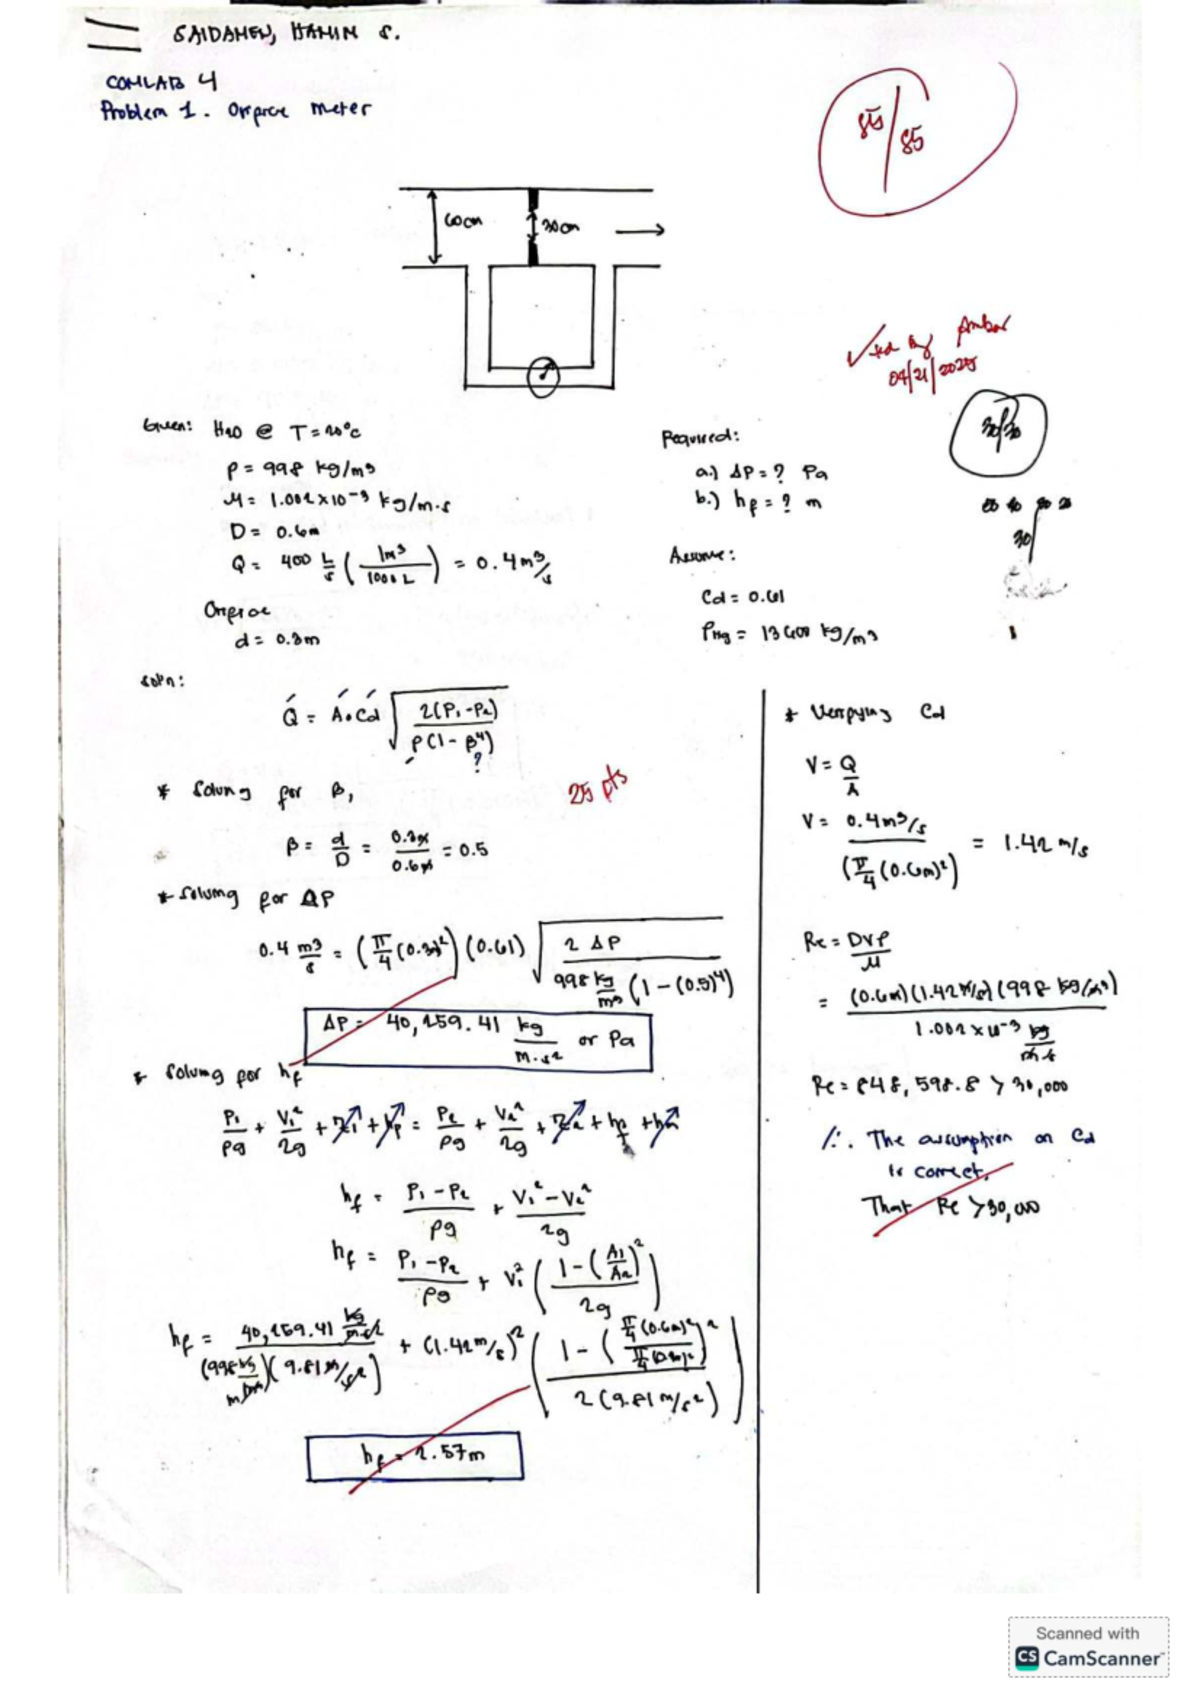 SAIDAMEN, HANIN S.
COMLAB 4
Problem 1. Orifice meter
85/85
60cm
30cm
✓ted by Ambar
04/21/2025
30/30
Given: H2O @ T = 20°c
ρ = 998 kg/m³
μ = 1.002 x 10⁻³ kg/m·s
D = 0.6m
Q = 400 L/s (1m³/1000L) = 0.4 m³/s
Orifice
d = 0.3m
Required:
a.) ΔP = ? Pa
b.) hf = ? m
30
Assume:
Cd = 0.61
ρHg = 13600 kg/m³
Sol'n:
Q = A·Cd √(2(P₁-P₂)/ρ(1-β⁴))
?
* Solving for β,
25 pts
β = d/D = 0.3m/0.6m = 0.5
* Solving for ΔP
0.4 m³/s = (π/4 (0.3)²)(0.61) √(2 ΔP/998 kg/m³ (1-(0.5)⁴))
ΔP = 40,259.41 kg/m·s² or Pa
* Solving for hf
P₁/ρg + V₁²/2g + Z₁ + hp = P₂/ρg + V₂²/2g + Z₂ + hf + hm
hf = P₁-P₂/ρg + V₁²-V₂²/2g
hf = P₁-P₂/ρg + V₁² (1-(A₁/A₂)²/2g)
hf = 40,259.41 kg/m·s²/(998 kg/m³)(9.81 m/s²) + (1.42 m/s)² (1-(π/4 (0.6m)²/π/4 (0.3m)²)²/2(9.81 m/s²))
hf = 2.57m
* Verifying Cd
V = Q/A
V = 0.4 m³/s/(π/4 (0.6m)²) = 1.42 m/s
Re = DVρ/μ
= (0.6m)(1.42 m/s)(998 kg/m³)/1.002 x 10⁻³ kg/m·s
Re = 848,598.8 > 30,000
∴ The assumption on Cd
is correct,
That Re > 30,000
Scanned with
CS CamScanner